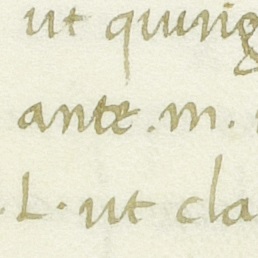 ut quiri
ante .m.
. L. ut cla